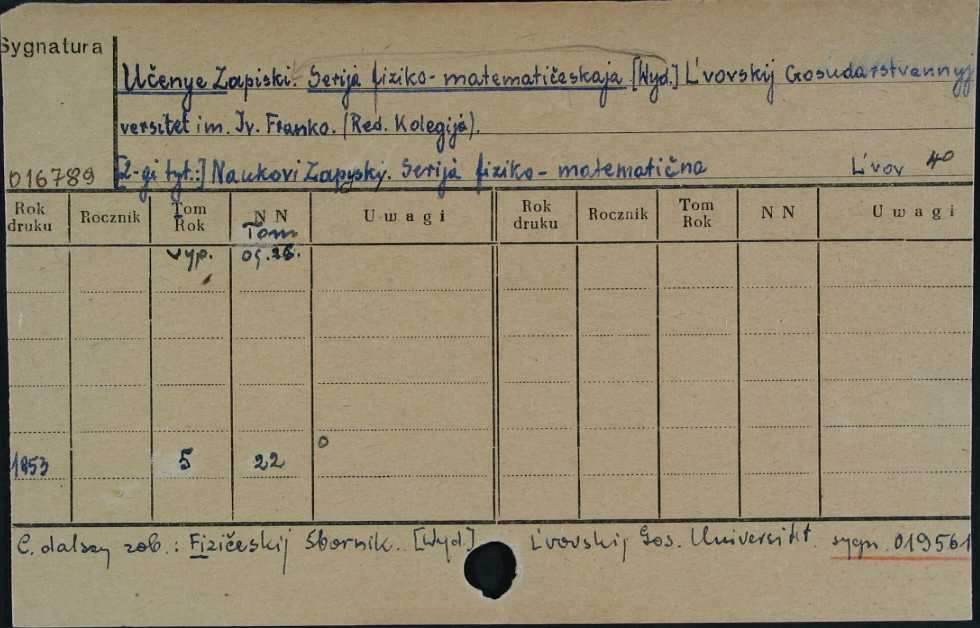 Sygnatura
Učenye Zapiski. Serija fiziko-matematičeskaja [Wyd.] L'vovskij Gosudarstvennyj
versitet im. Iv. Franko. (Red. Kolegija).
016789 [2-gi tyt.:] Naukovi Zapysky. Serija fiziko-matematična L'vov 4o
Rok druku Rocznik Tom Rok NN Tom Uwagi Rok druku Rocznik Tom Rok NN Uwagi
vyp.
1953 5 22 o
C. dalszy zob.: Fizičeskij Sbornik. [Wyd.] L'vovskij Gos. Universitet. sygn. 019561